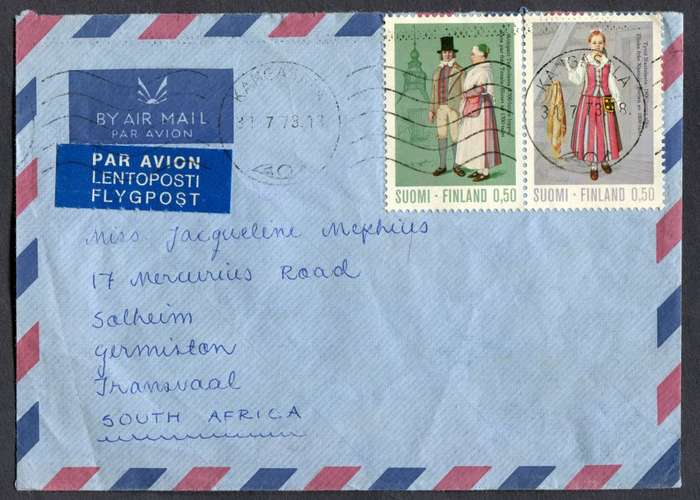 BY AIR MAIL
PAR AVION
PAR AVION
LENTOPOSTI
FLYGPOST
KANGASALA
7.73.
SUOMI · FINLAND 0,50
KANGASALA
7.73
SUOMI · FINLAND 0,50
Miss. Jacqueline Mephius
17 Mercurius Road
Solheim
Germiston
Transvaal
SOUTH AFRICA